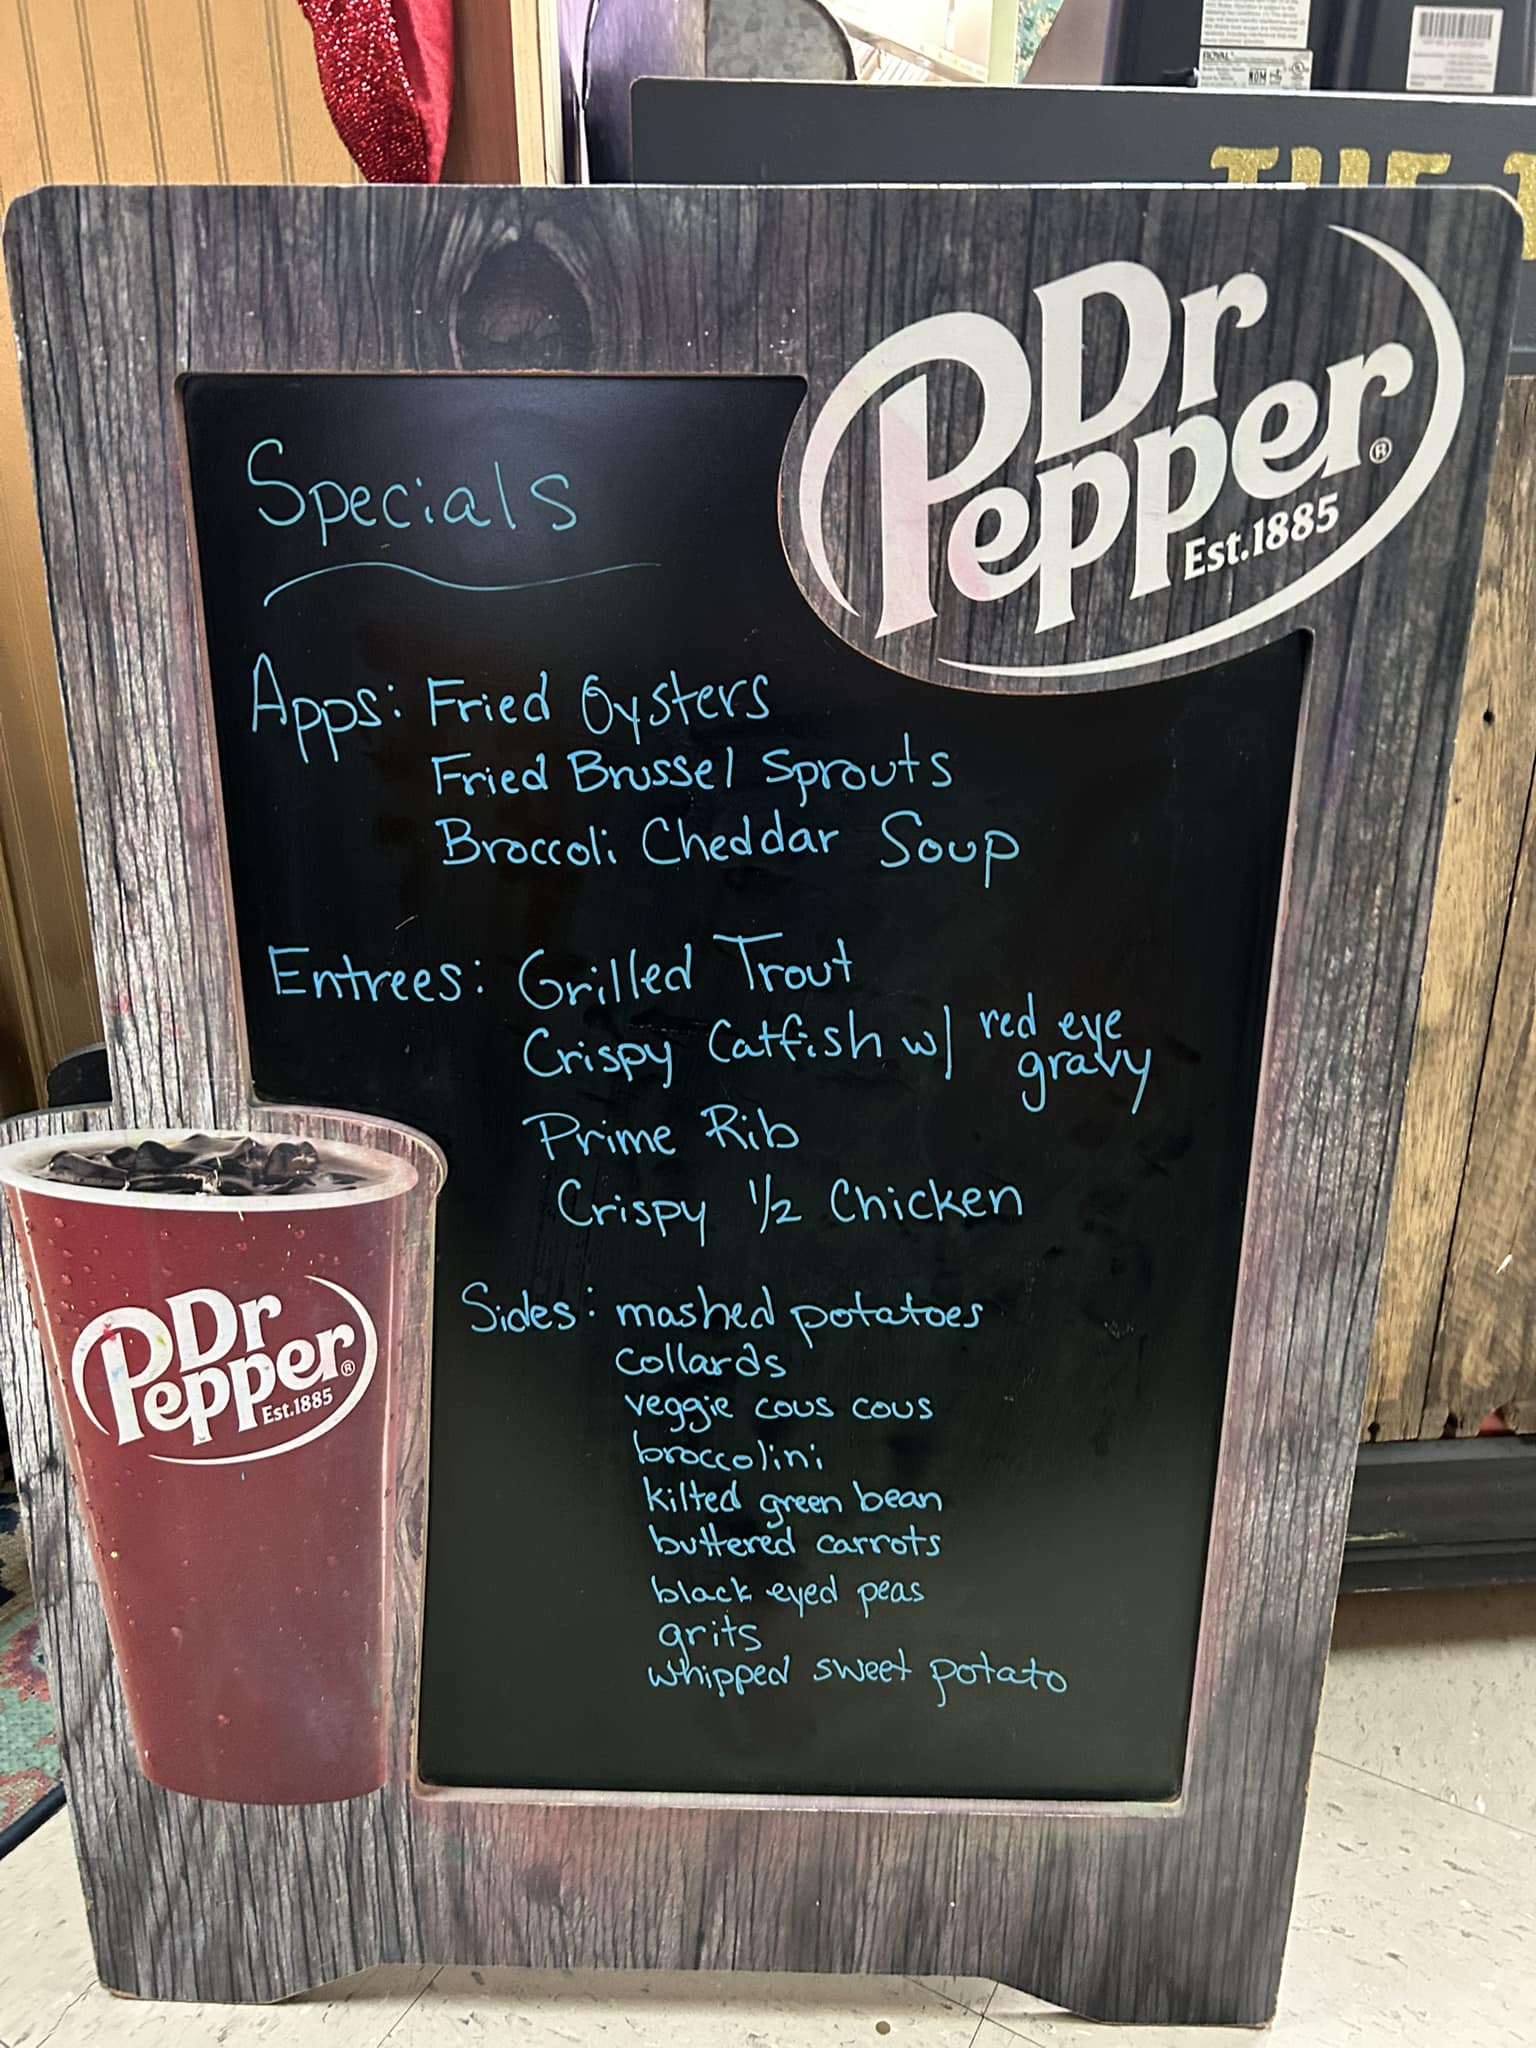 ROYAL
NOM
THE
Dr
Pepper®
Est.1885
Specials
Apps: Fried Oysters
Fried Brussel Sprouts
Broccoli Cheddar Soup
Entrees: Grilled Trout
Crispy Catfish w/ red eye
gravy
Prime Rib
Crispy 1/2 Chicken
Sides: mashed potatoes
collards
veggie cous cous
broccolini
kilted green bean
buttered carrots
black eyed peas
grits
whipped sweet potato
Dr
Pepper®
Est.1885